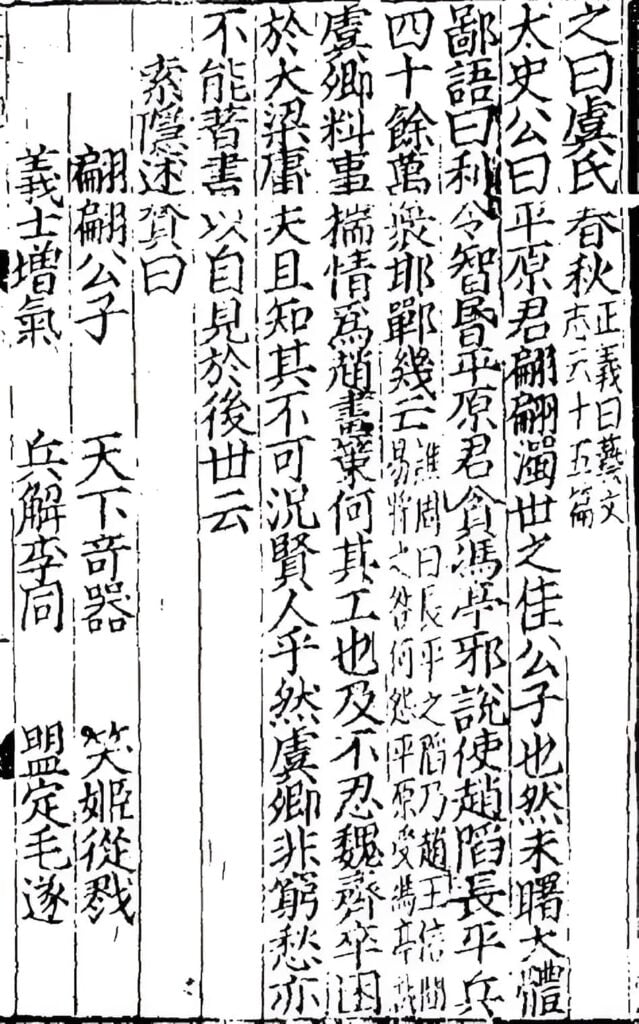 之曰虞氏春秋正義曰藝文志云十五篇
太史公曰平原君翩翩濁世之佳公子也然未曙大體
鄙語曰利令智昬平原君貪馮亭邪說使趙陷長平兵
四十餘萬衆邯鄲幾亡譙周曰長平之陷乃趙王信間易將之咎何怨平原受馮亭哉
虞卿料事揣情爲趙畫策何其工也及不忍魏齊卒困
於大梁庸夫且知其不可況賢人乎然虞卿非窮愁亦
不能著書以自見於後世云
索隱述贊曰
翩翩公子 天下奇器 笑姬從戮
義士增氣 兵解李同 盟定毛遂